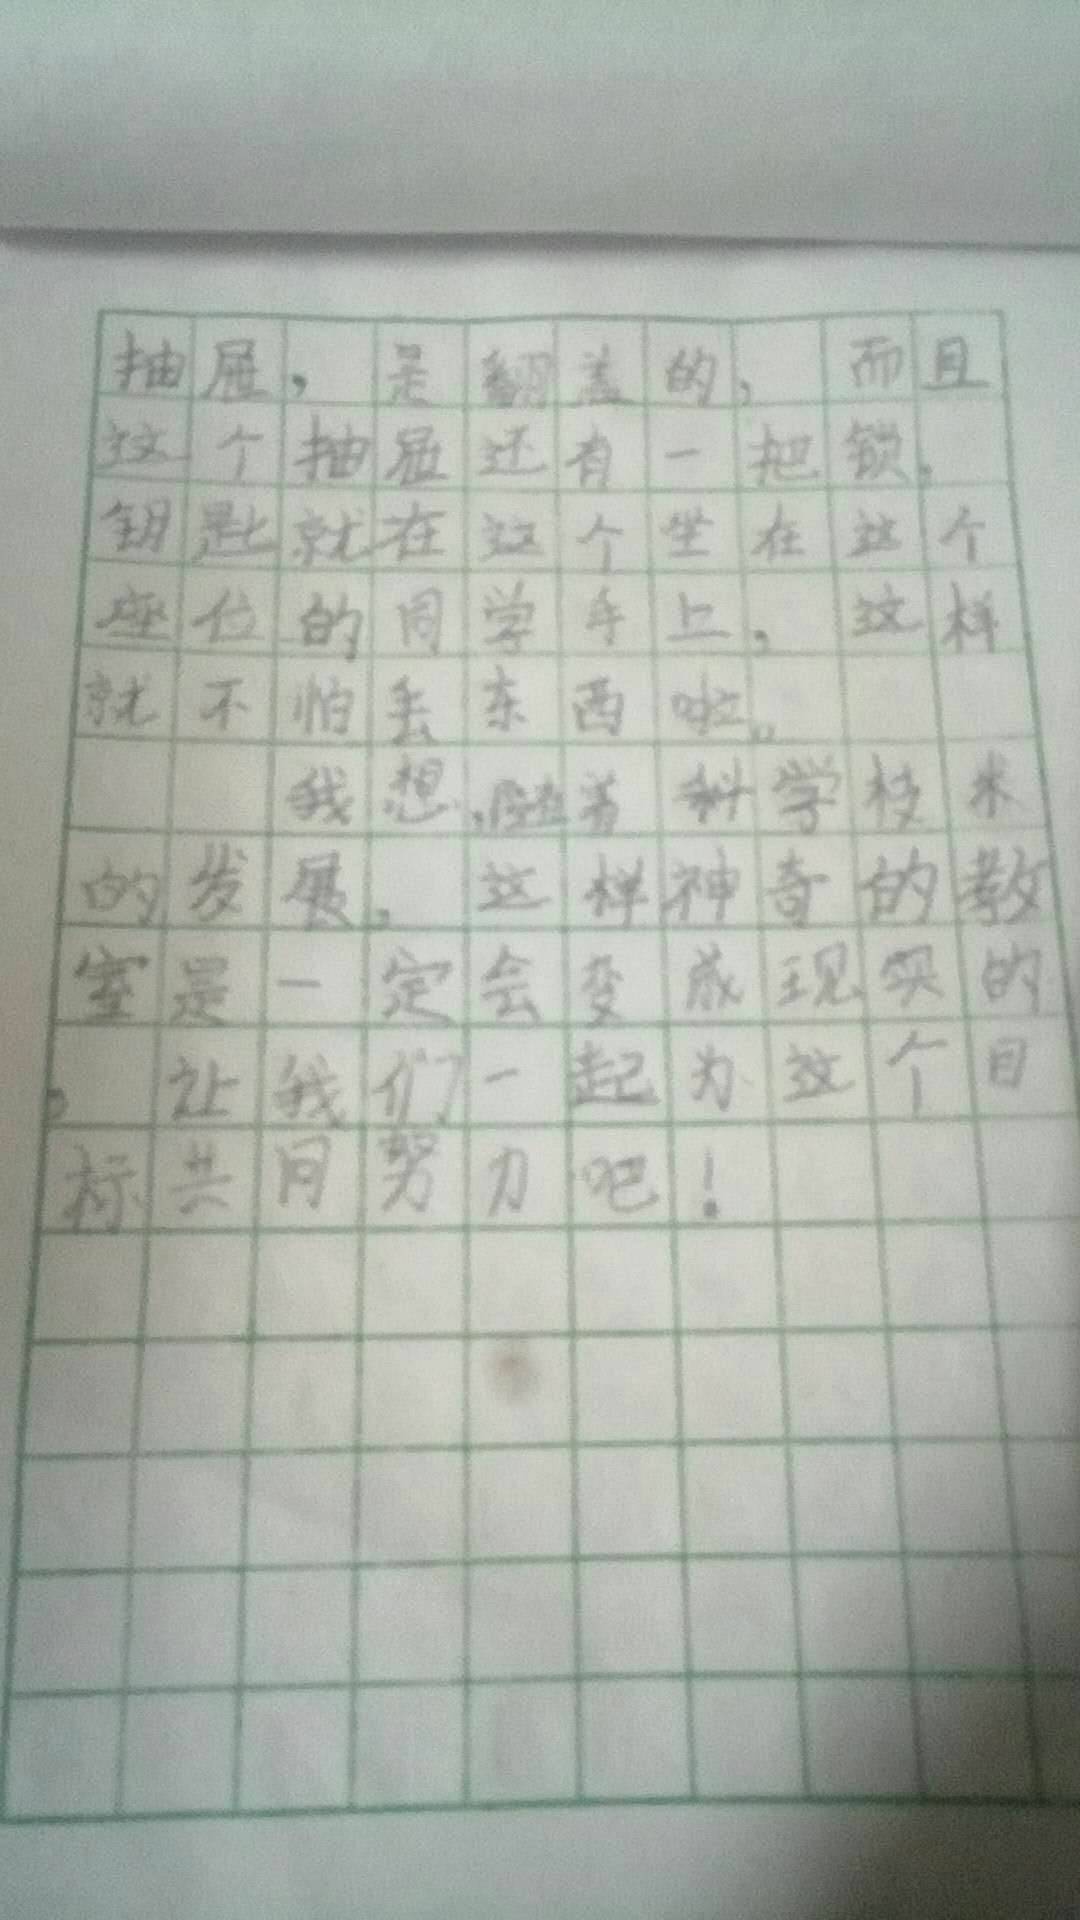 抽屉，是翻盖的，而且
这个抽屉还有一把锁，
钥匙就在这个坐在这个
座位的同学手上，这样
就不怕丢东西啦。
我想，随着科学技术
的发展，这样神奇的教
室是一定会变成现实的
，让我们一起为这个目
标共同努力吧！